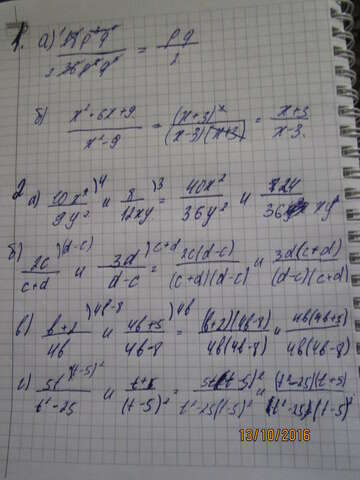 1. а) p²q² / 2 36p²q³ = pq / 2
б) x²+6x+9 / x²-9 = (x+3)² / (x-3)(x+3) = x+3 / x-3
2 а) 10x² / 9y² )4 и 8 / 12xy )3 = 40x² / 36y² и 24 / 36 xy
б) 2c / c+d )(d-c) и 3d / d-c )c+d = 2c(d-c) / (c+d)(d-c) и 3d(c+d) / (d-c)(c+d)
в) b+2 / 4b )4b-8 и 4b+5 / 4b-8 )4b = (b+2)(4b-8) / 4b(4b-8) и 4b(4b+5) / 4b(4b-8)
г) 5t / t²-25 )(t-5)² и t+5 / (t-5)² = 5t(t-5)² / t²-25(t-5)² и (t²-25)(t+5) / (t²-25)(t-5)²
13/10/2016